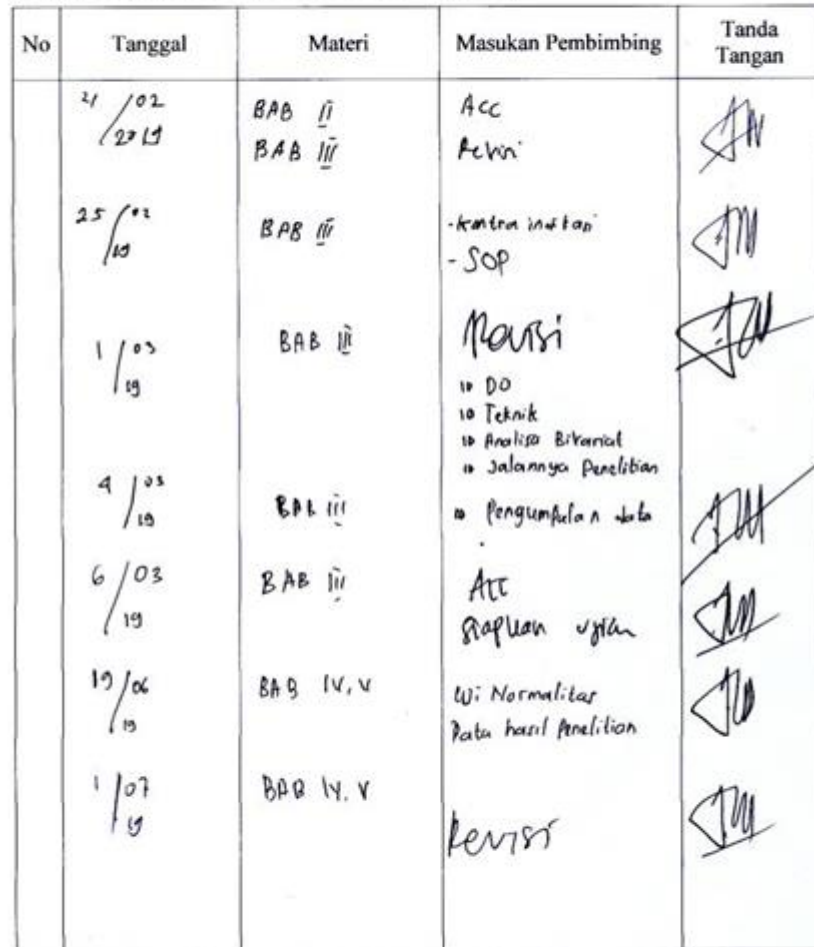 No Tanggal Materi Masukan Pembimbing Tanda Tangan
21/02 2019 BAB II Acc
BAB III Revisi
25/02 19 BAB III - Kontra indikasi
- SOP
1/03 19 BAB III Revisi
DO
Teknik
Analisa Bivariat
Jalannya Penelitian
4/03 19 BAB III Pengumpulan data
6/03 19 BAB III Acc
siapkan ujian
19/06 19 BAB IV, V Uji Normalitas
Data hasil Penelitian
1/07 19 BAB IV, V Revisi